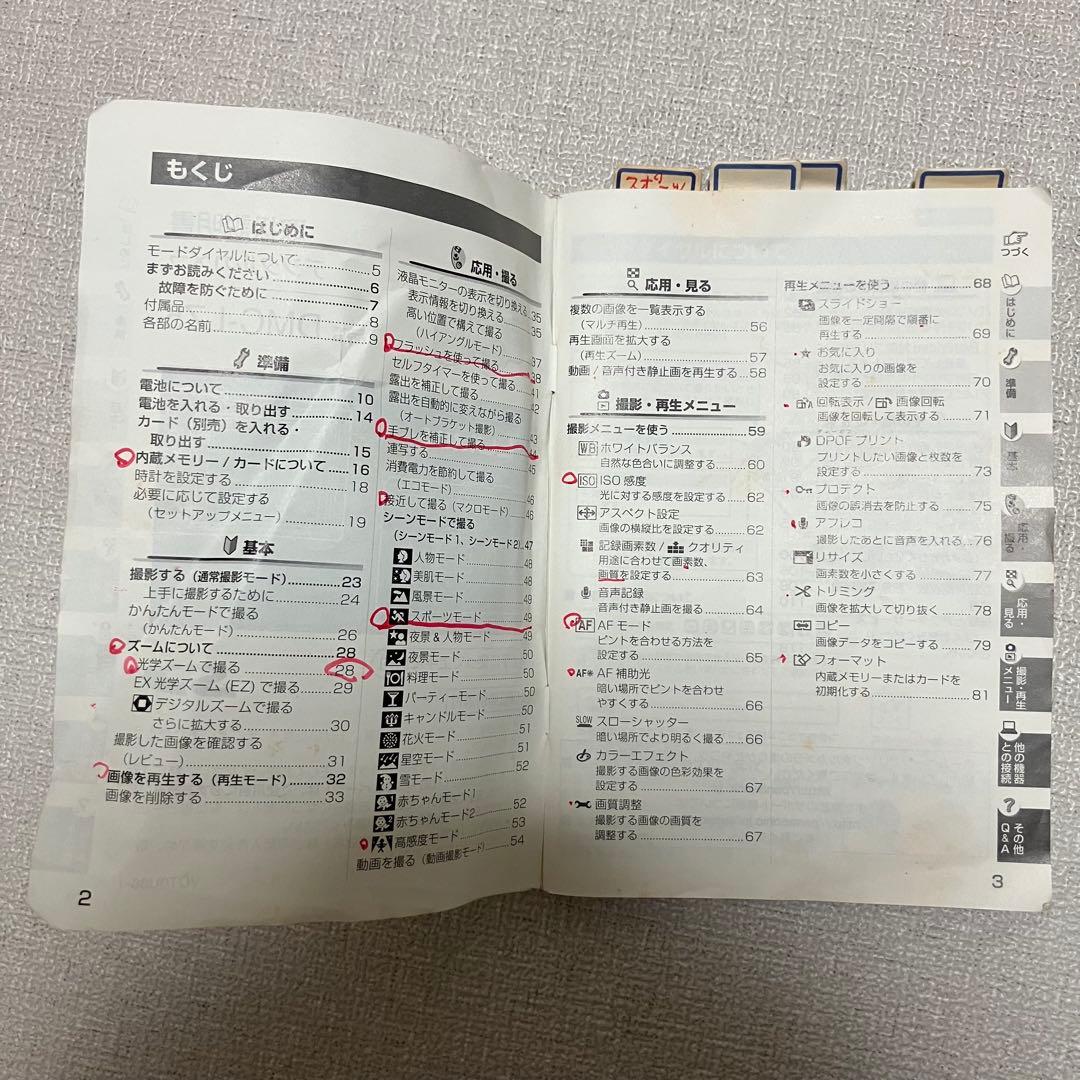 もくじ
はじめに
モードダイヤルについて 5
まずお読みください 6
故障を防ぐために 7
付属品 8
各部の名前 9
準備
電池について 10
電池を入れる・取り出す 14
カード(別売)を入れる・
取り出す 15
内蔵メモリー/カードについて 16
時計を設定する 18
必要に応じて設定する
(セットアップメニュー) 19
基本
撮影する(通常撮影モード) 23
上手に撮影するために 24
かんたんモードで撮る
(かんたんモード) 26
ズームについて 28
光学ズームで撮る 28
EX光学ズーム(EZ)で撮る 29
デジタルズームで撮る
さらに拡大する 30
撮影した画像を確認する
(レビュー) 31
画像を再生する(再生モード) 32
画像を削除する 33
2
応用・撮る
液晶モニターの表示を切り換える 35
表示情報を切り換える 35
高い位置で構えて撮る
(ハイアングルモード) 37
フラッシュを使って撮る 38
セルフタイマーを使って撮る 41
露出を補正して撮る 42
露出を自動的に変えながら撮る
(オートブラケット撮影) 43
手ブレを補正して撮る 44
連写する 45
消費電力を節約して撮る
(エコモード) 46
接近して撮る(マクロモード) 46
シーンモードで撮る
(シーンモード1、シーンモード2) 47
人物モード 48
美肌モード 48
風景モード 49
スポーツモード 49
夜景&人物モード 49
夜景モード 50
料理モード 50
パーティーモード 50
キャンドルモード 50
花火モード 51
星空モード 51
雪モード 52
赤ちゃんモード1
赤ちゃんモード2 52
高感度モード 53
動画を撮る(動画撮影モード) 54
応用・見る
複数の画像を一覧表示する
(マルチ再生) 56
再生画面を拡大する
(再生ズーム) 57
動画/音声付き静止画を再生する 58
撮影・再生メニュー
撮影メニューを使う 59
WB ホワイトバランス
自然な色合いに調整する 60
ISO ISO感度
光に対する感度を設定する 62
アスペクト設定
画像の横縦比を設定する 62
記録画素数/クオリティ
用途に合わせて画素数、
画質を設定する 63
音声記録
音声付き静止画を撮る 64
AF AFモード
ピントを合わせる方法を
設定する 65
AF※ AF補助光
暗い場所でピントを合わせ
やすくする 66
SLOW スローシャッター
暗い場所でより明るく撮る 66
カラーエフェクト
撮影する画像の色彩効果を
設定する 67
画質調整
撮影する画像の画質を
調整する 67
再生メニューを使う 68
スライドショー
画像を一定間隔で順番に
再生する 69
お気に入り
お気に入りの画像を
設定する 70
回転表示/画像回転
画像を回転して表示する 71
DPOFプリント
プリントしたい画像と枚数を
設定する 73
プロテクト
画像の誤消去を防止する 75
アフレコ
撮影したあとに音声を入れる 76
リサイズ
画素数を小さくする 77
トリミング
画像を拡大して切り抜く 78
コピー
画像データをコピーする 79
フォーマット
内蔵メモリーまたはカードを
初期化する 81
つづく
はじめに
準備
基本
応用・撮る
応用・見る
撮影・再生メニュー
他の機器との接続
その他 Q&A
3